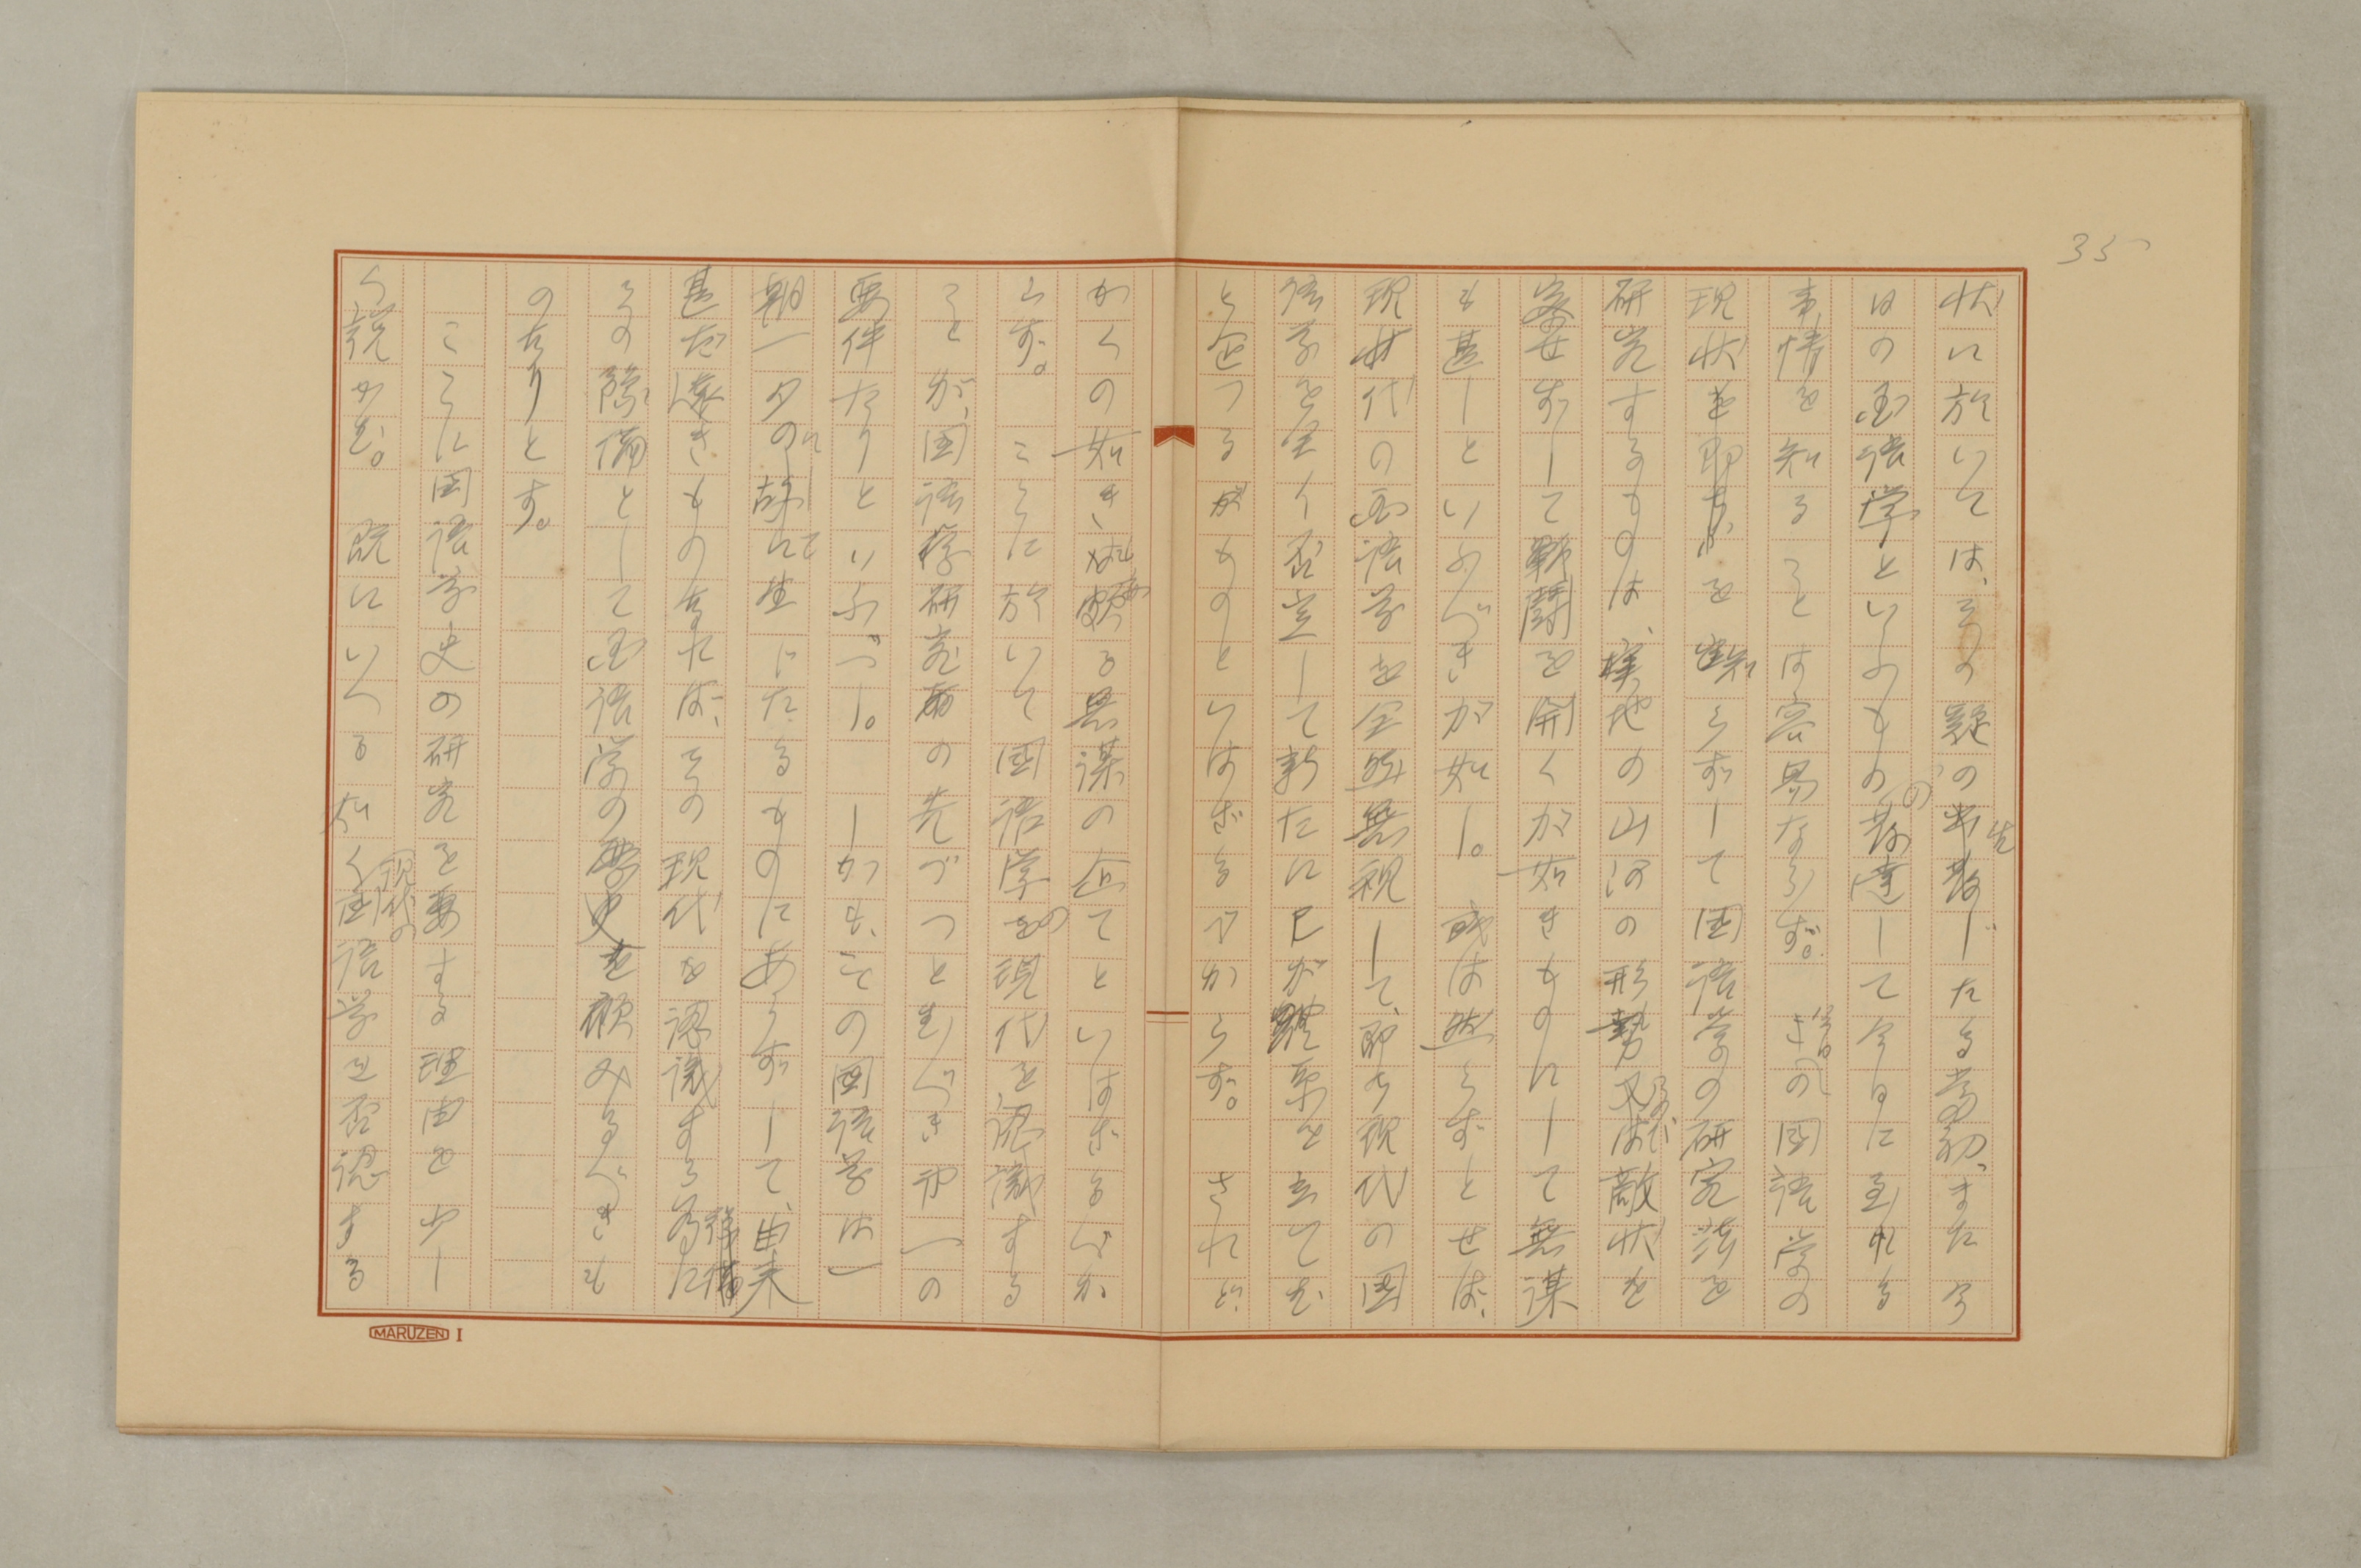 35
状に於いては、その疑の出発したる当初、また今
日の国語学といふものの発達して今日に至れる
事情を知ることは容易ならず。の国語学の
現状を即を知らずして国語学の研究法を
研究するものは、実地の山河の形勢又は敵状を
察せずして戦闘を開くが如きものにして無謀
も甚しといふべきが如し。或は然らずとせば、
現代の国語学を全然無視して、即ち現代の国
語学を全く否定して新たに己が体系を立てむ
と企つるものといはざるべからず。されど、
かくの如きは頗る無謀の企てといはざるべか
らず。ここに於いて国語学の現代を認識する
ことが、国語学研究の先づつとむべき第一の
要件たりといふべし。しかも、その国語学は一
朝一夕に生じたるものにあらずして、由来
甚だ遠きものなれば、その現代を認識する為に
その準備として国語学の歴史を顧みるべきも
のなりとす。
ここに国語学史の研究を要する理由を少し
く説かむ。既にいへる如く現代の国語学を否認する
MARUZEN I